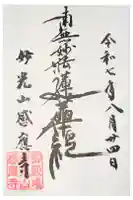 令和七年八月廿四日
南無妙法蓮華経
妙光山感應寺